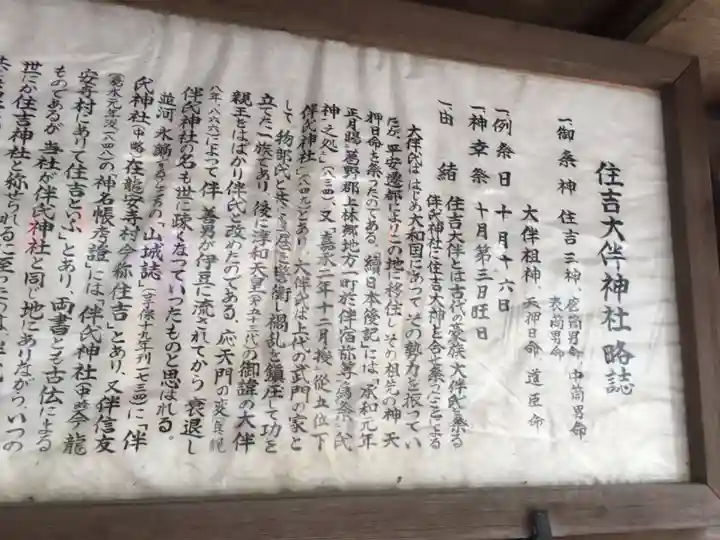 住吉大伴神社 略誌
一、御祭神 住吉三神、底筒男命、中筒男命
表筒男命
大伴祖神、天押日命 道臣命
一、例祭日 十月十六日
一、神幸祭 十月第三日旺日
一、由緒 住吉大伴とは古代の豪族大伴氏を祭る
伴氏神社に住吉大神を合せ祭ったことによる
大伴氏は はじめ大和国にあって、その勢力を振ってい
たが、平安遷都によりこの地に移住し その祖先の神 天
押日命を祭ったのである。續日本後記には「承和元年
正月賜葛野郡上林郷地方一町於伴宿祢等 為祭氏
神之処」(八三四) 又「嘉永二年十二月授 従五位下
伴氏神社」(八四九)とあり、大伴氏は上代の武門の家と
して 物部氏と共に 歴世警衛 禍乱を鎮圧して功を
立てた一族であり 後に淳和天皇(第五十三代)の御諱の大伴
親王をはばかり伴氏と改めたのである。応天門の変(貞観
八年・八六六)によって伴 善男が伊豆に流されてから 衰退し
伴氏神社の名も世に疎くなっていったものと思はれる。
並河 永の「山城誌」(享保十九年刊 一七三四)に「伴
氏神社(中略)在龍安寺村今称住吉」とあり、又伴信友
の「神名帳考證」には「伴氏神社 今 龍
安寺村にありて住吉といふ」とあり、両書とも古伝による
ものであるが 当社が伴氏神社と同じ地にありながら、いつの
世にか住吉神社と称せられるに至った